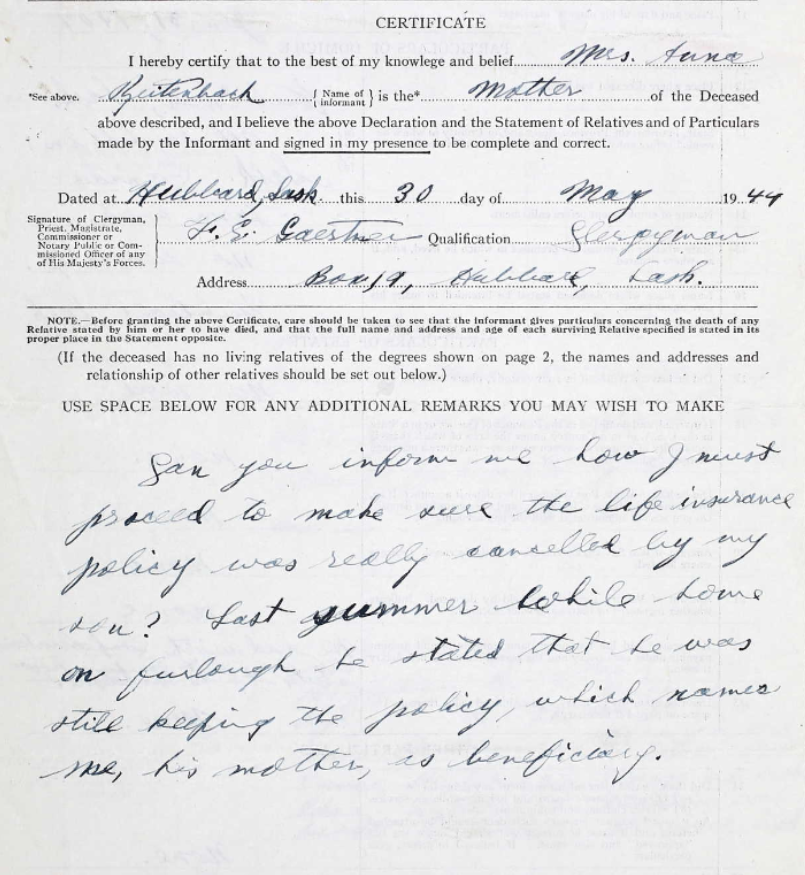 CERTIFICATE
I hereby certify that to the best of my knowlege and belief Mrs. Anna
*See above. Reitenbach { Name of informant } is the* Mother of the Deceased
above described, and I believe the above Declaration and the Statement of Relatives and of Particulars
made by the Informant and signed in my presence to be complete and correct.
Dated at Hubbard, Sask. this 30 day of May 1944
Signature of Clergyman,
Priest, Magistrate,
Commissioner or
Notary Public or Com-
missioned Officer of any
of His Majesty's Forces.
F. E. Gaestner Qualification Clergyman
Address Box 19, Hubbard, Sask.
NOTE.—Before granting the above Certificate, care should be taken to see that the Informant gives particulars concerning the death of any
Relative stated by him or her to have died, and that the full name and address and age of each surviving Relative specified is stated in its
proper place in the Statement opposite.
(If the deceased has no living relatives of the degrees shown on page 2, the names and addresses and
relationship of other relatives should be set out below.)
USE SPACE BELOW FOR ANY ADDITIONAL REMARKS YOU MAY WISH TO MAKE
Can you inform me how I must
proceed to make sure the life insurance
policy was really cancelled by my
son? Last summer while home
on furlough he stated that he was
still keeping the policy, which names
me, his mother, as beneficiary.